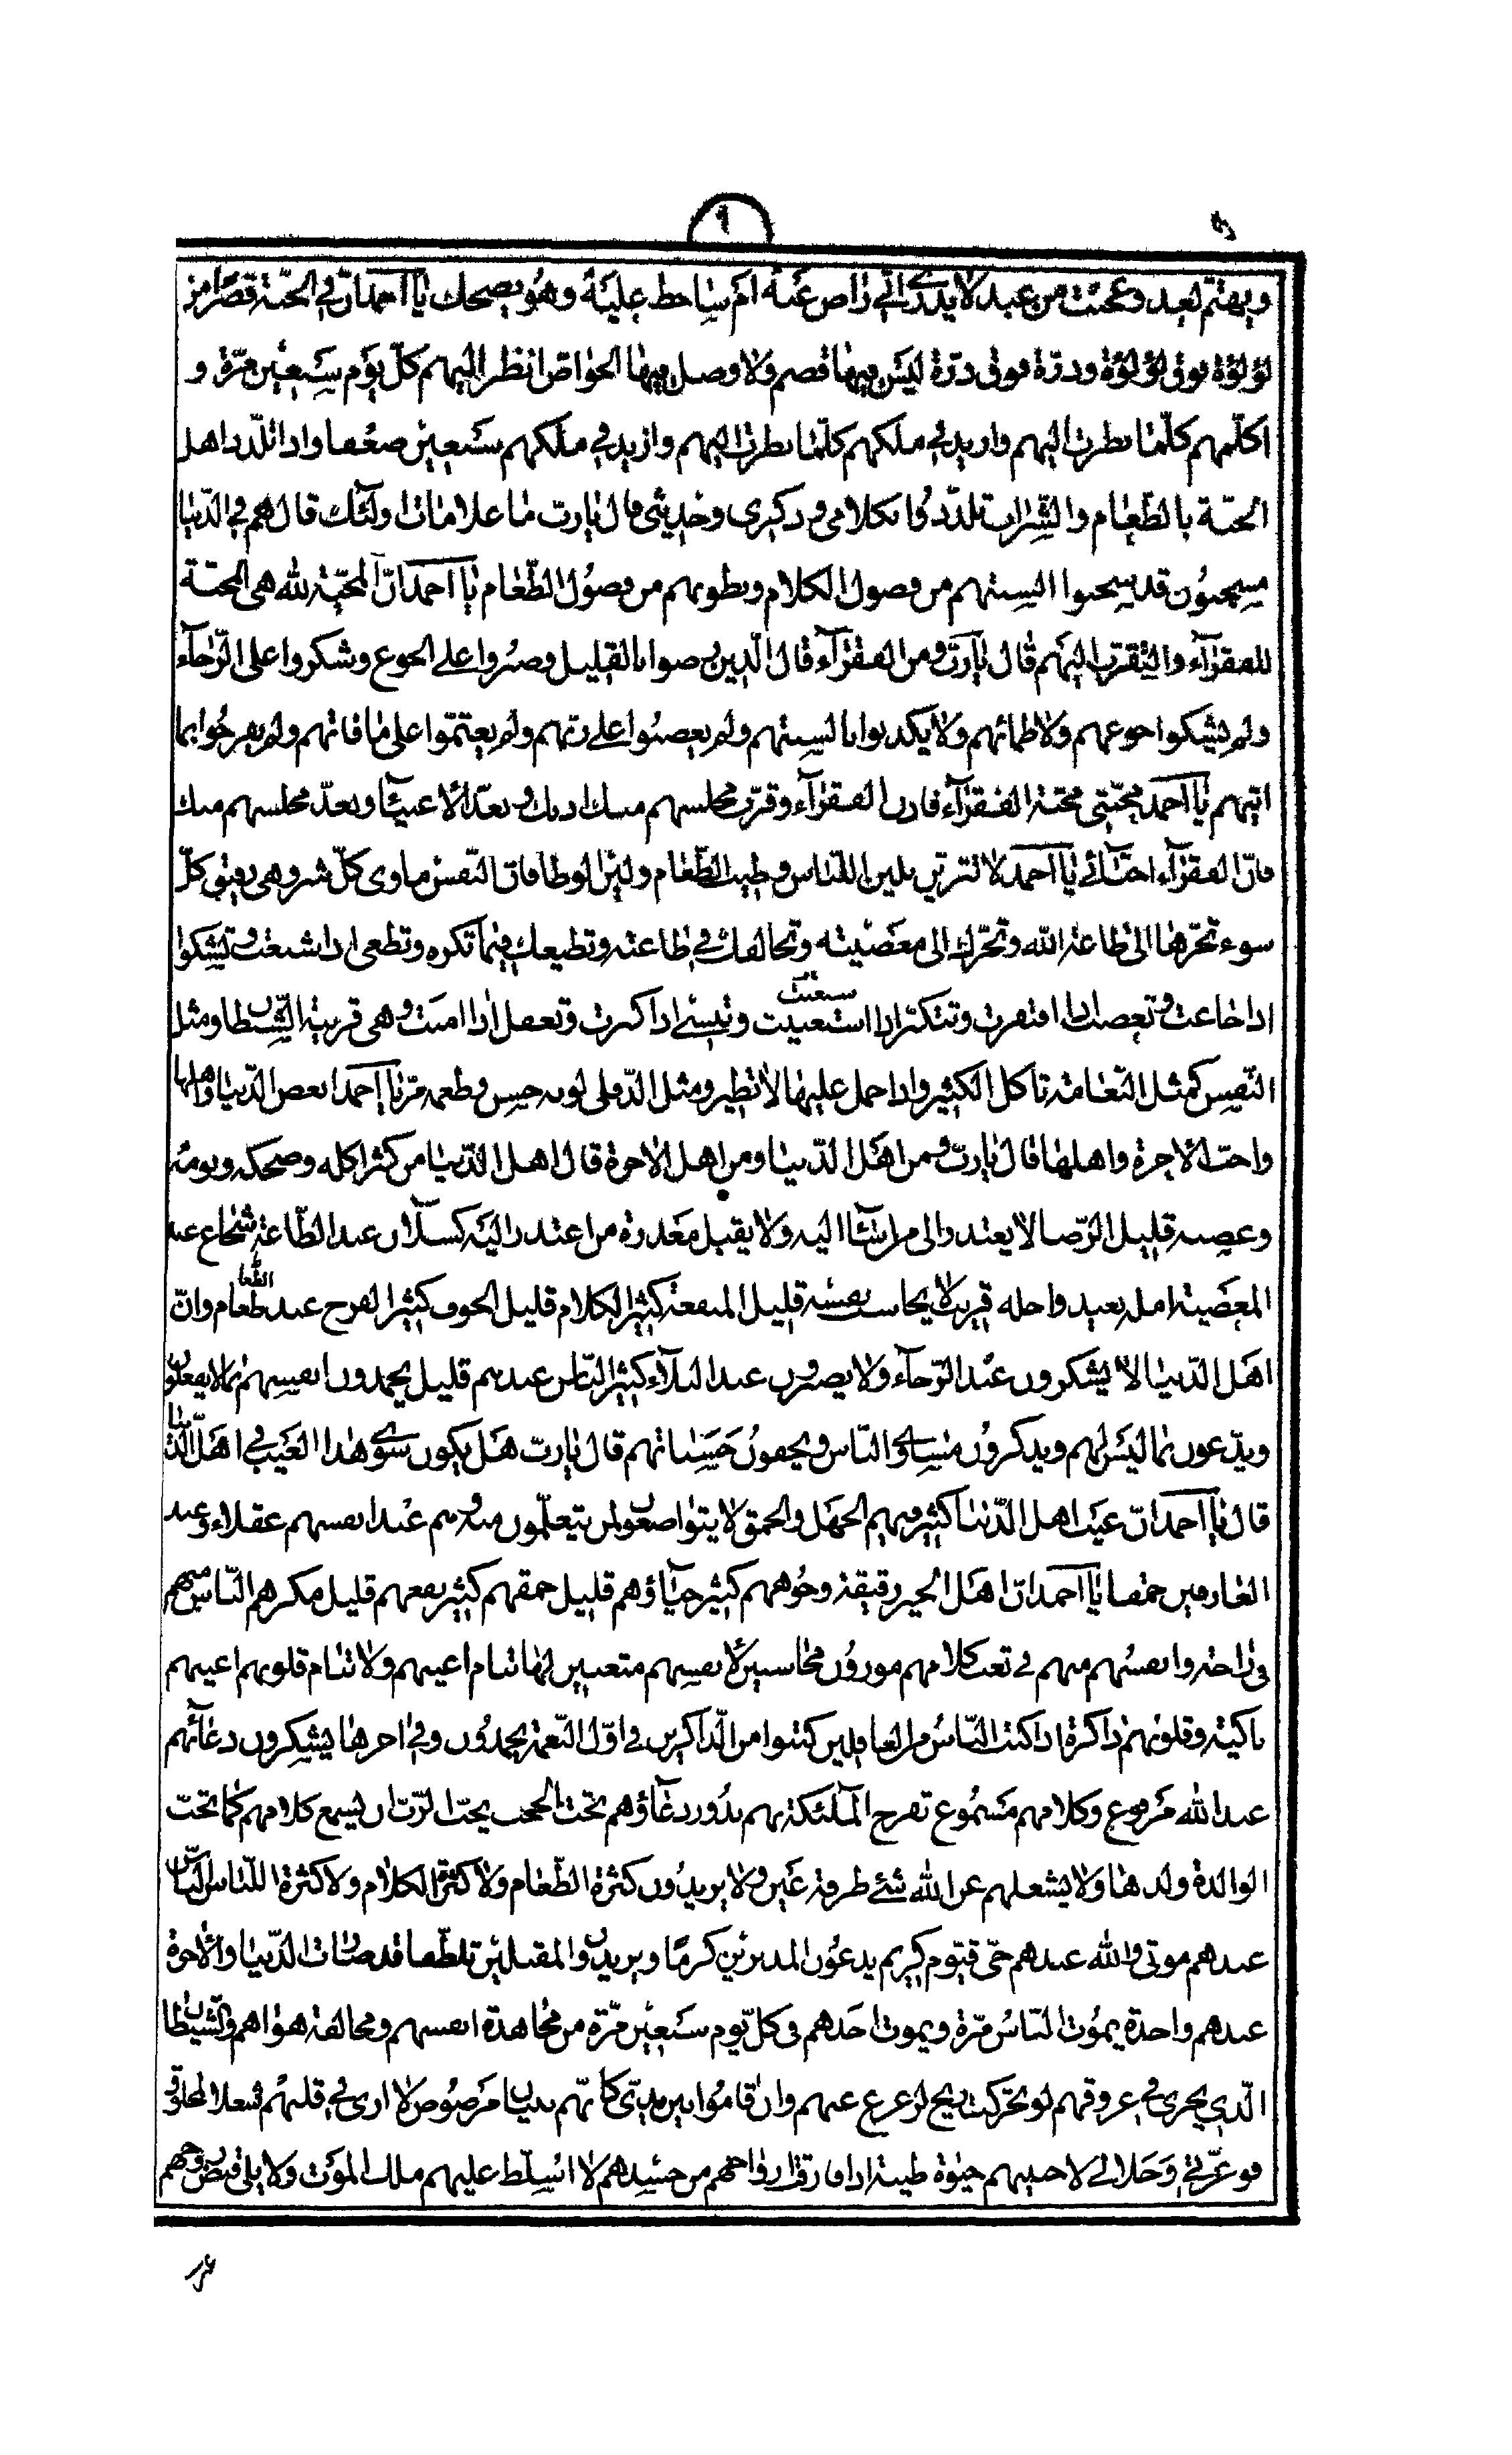 ٦
ويهتم لغد وعجبت من عبد لا يدري انّي راض عنه ام ساخط عليه وهو يضحك يا احمد انّ في الجنّة قصرًا من
لؤلؤة فوق لؤلؤة ودرّة فوق درّة ليس فيها قصم ولا وصل فيها الخواصّ انظر اليهم كلّ يوم سبعين مرّة و
اكلّمهم كلّما نظرت اليهم وازيد في ملكهم كلّما نظرت اليهم وازيد في ملكهم سبعين ضعفا واذا تلذّذ اهل
الجنّة بالطّعام والشّراب تلذّذوا بكلامي وذكري وحديثي قال يا ربّ ما علامات اولئك قال هم في الدّنيا
مسجونون قد سجنوا السنتهم من فضول الكلام وبطونهم من فضول الطّعام يا احمد انّ المحبّة لله هي المحبّة
للفقرآء والتقرّب اليهم قال يا ربّ ومن الفقرآء قال الّذين رضوا بالقليل وصبروا على الجوع وشكروا على الرّخآء
ولم يشكوا جوعهم ولا ظمائهم ولا يكذبوا بالسنتهم ولم يغضبوا على ربّهم ولم يغتمّوا على ما فاتهم ولم يفرحوا بما
اتيهم يا احمد محبّتي محبّة الفقرآء فادن الفقرآء وقرّب مجلسهم منك ادنك وبعّد الاغنيآء وبعّد مجلسهم منك
فانّ الفقرآء احبّائي يا احمد لا تتزيّن بلين اللّباس وطيب الطّعام ولين الوطا فانّ النّفس ماوى كلّ شر وهي رفيق كلّ
سوء تجرّها الى طاعة الله وتجرّك الى معصيته وتخالفك في طاعته وتطيعك فيما تكره وتطغى اذا شبعت وتشكوا
اذا جاعت وتغضب اذا افتقرت وتتكبّر اذا استغنيت وتنسى اذا كبرت وتغفل اذا امنت وهي قرينة الشّيطان ومثل
النّفس كمثل النّعامة تاكل الكثير واذا حمل عليها لا تطير ومثل الدّفلى لونه حسن وطعمه مرّ يا احمد ابغض الدّنيا واهلها
واحبّ الاخرة واهلها قال يا ربّ ومن اهل الدّنيا ومن اهل الاخرة قال اهل الدّنيا من كثر اكله وضحكه ونومه
وغضبه قليل الرّضا لا يعتذر الى من اسآء اليه ولا يقبل معذرة من اعتذر اليه كسلان عند الطّاعة شجاع عند
المعصية امله بعيد واجله قريب لا يحاسب نفسه قليل المنفعة كثير الكلام قليل الخوف كثير الفرح عند طعام وانّ
اهل الدّنيا لا يشكرون عند الرّخآء ولا يصبرون عند البلآء كثير النّاس عندهم قليل يحمدون انفسهم بما لا يفعلون
ويدّعون بما ليس لهم ويذكرون مساوي النّاس ويخفون حسناتهم قال يا ربّ هل يكون سوى هذا العيب في اهل الدّنيا
قال يا احمد انّ عيب اهل الدّنيا كثير فيهم الجهل والحمق لا يتواضعون لمن يتعلّمون منه وهم عند انفسهم عقلاء وعند
العارفين حمقا يا احمد انّ اهل الخير رقيقة وجوههم كثير حيآؤهم قليل حمقهم كثير نفعهم قليل مكرهم النّاس منهم
في راحة وانفسهم منهم في تعب كلامهم موزون محاسبين لانفسهم متعبين لها تنام اعينهم ولا تنام قلوبهم اعينهم
باكية وقلوبهم ذاكرة اذا كتب النّاس من الغافلين كتبوا من الذّاكرين في اوّل النّعمة يحمدون وفي اخرها يشكرون دعآئهم
عند الله مرفوع وكلامهم مسموع تفرح الملآئكة بهم يدور دعآؤهم تحت الحجب يحبّ الرّبّ ان يسمع كلامهم كما تحبّ
الوالدة ولدها ولا يشغلهم عن الله شيء طرفة عين ولا يريدون كثرة الطّعام ولا كثرة الكلام ولا كثرة اللّباس النّاس
عندهم موتى والله عندهم حيّ قيّوم كريم يدعون المدبرين كرمًا ويريدون المقبلين تلطّفا قد صارت الدّنيا والاخرة
عندهم واحدة يموت النّاس مرّة ويموت احدهم في كلّ يوم سبعين مرّة من مجاهدة انفسهم ومخالفة هواهم والشّيطان
الّذي يجري في عروقهم لو تحرّكت ريح لزعزع عنهم وان قاموا بين يديّ كانّهم بنيان مرصوص لا ارى في قلبهم شغلا لمخلوق
فوعزّتي وجلالي لاحيينهم حيوة طيبة اذا فارقت ارواحهم من جسدهم لا اسلّط عليهم ملك الموت ولا يلي قبض روحهم